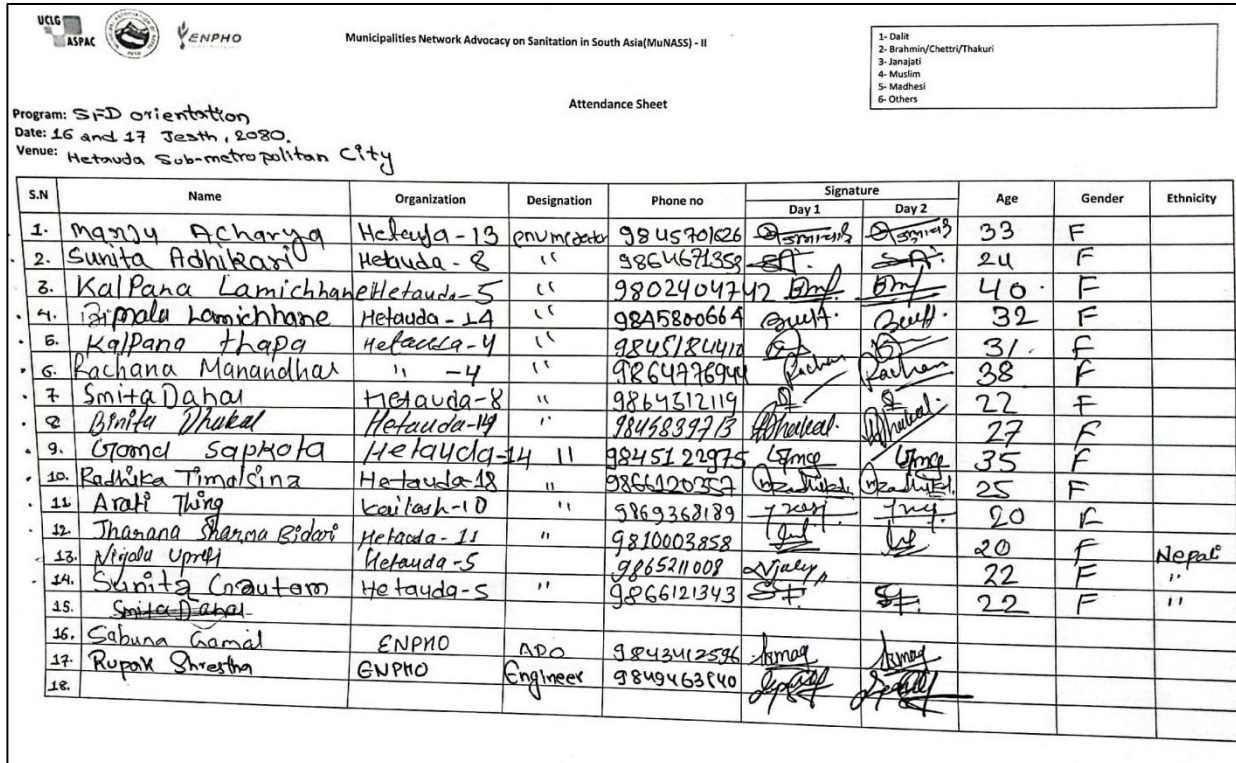 UCLG
ASPAC
ENPHO
Municipalities Network Advocacy on Sanitation in South Asia(MuNASS) - II
1- Dalit
2- Brahmin/Chettri/Thakuri
3- Janajati
4- Muslim
5- Madhesi
6- Others
Attendance Sheet
Program: SFD orientation
Date: 16 and 17 Jesth, 2080.
Venue: Hetauda Sub-metropolitan City
S.N Name Organization Designation Phone no Signature Age Gender Ethnicity
Day 1 Day 2
1. Manju Acharya Hetauda-13 enumerator 9845701626 33 F
2. Sunita Adhikari Hetauda-8 " 9864671359 SA. SA. 24 F
3. Kalpana Lamichhane Hetauda-5 " 9802404742 40 F
4. Bimala Lamichhane Hetauda-14 " 9845800664 32 F
5. Kalpana thapa Hetauda-4 " 31 F
6. Rachana Manandhar " -4 " 9864776944 Rachan Rachan 38 F
7 Smita Dahal Hetauda-8 " 9864312119 22 F
8 Binita Dhakal Hetauda-14 " 9845839713 Dhakal. Dhakal. 27 F
9. Goma Sapkota Hetauda-14 " 9845122975 35 F
10. Radhika Timalsina Hetauda-18 " 9866120357 Radhika. Radhika. 25 F
11 Arati Thing kailash-10 " 9869368189 20 F
12. Jharana Sharma Bidari Hetauda-11 " 9810003858 20 F Nepali
13. Nijala Upreti Hetauda-5 9865211008 22 F "
14. Sunita Gautam Hetauda-5 " 9866121343 22 F "
15. Smita Dahal
16. Sabuna Gamal ENPHO ADO 9843412596
17. Rupak Shrestha ENPHO Engineer 9849463840
18.